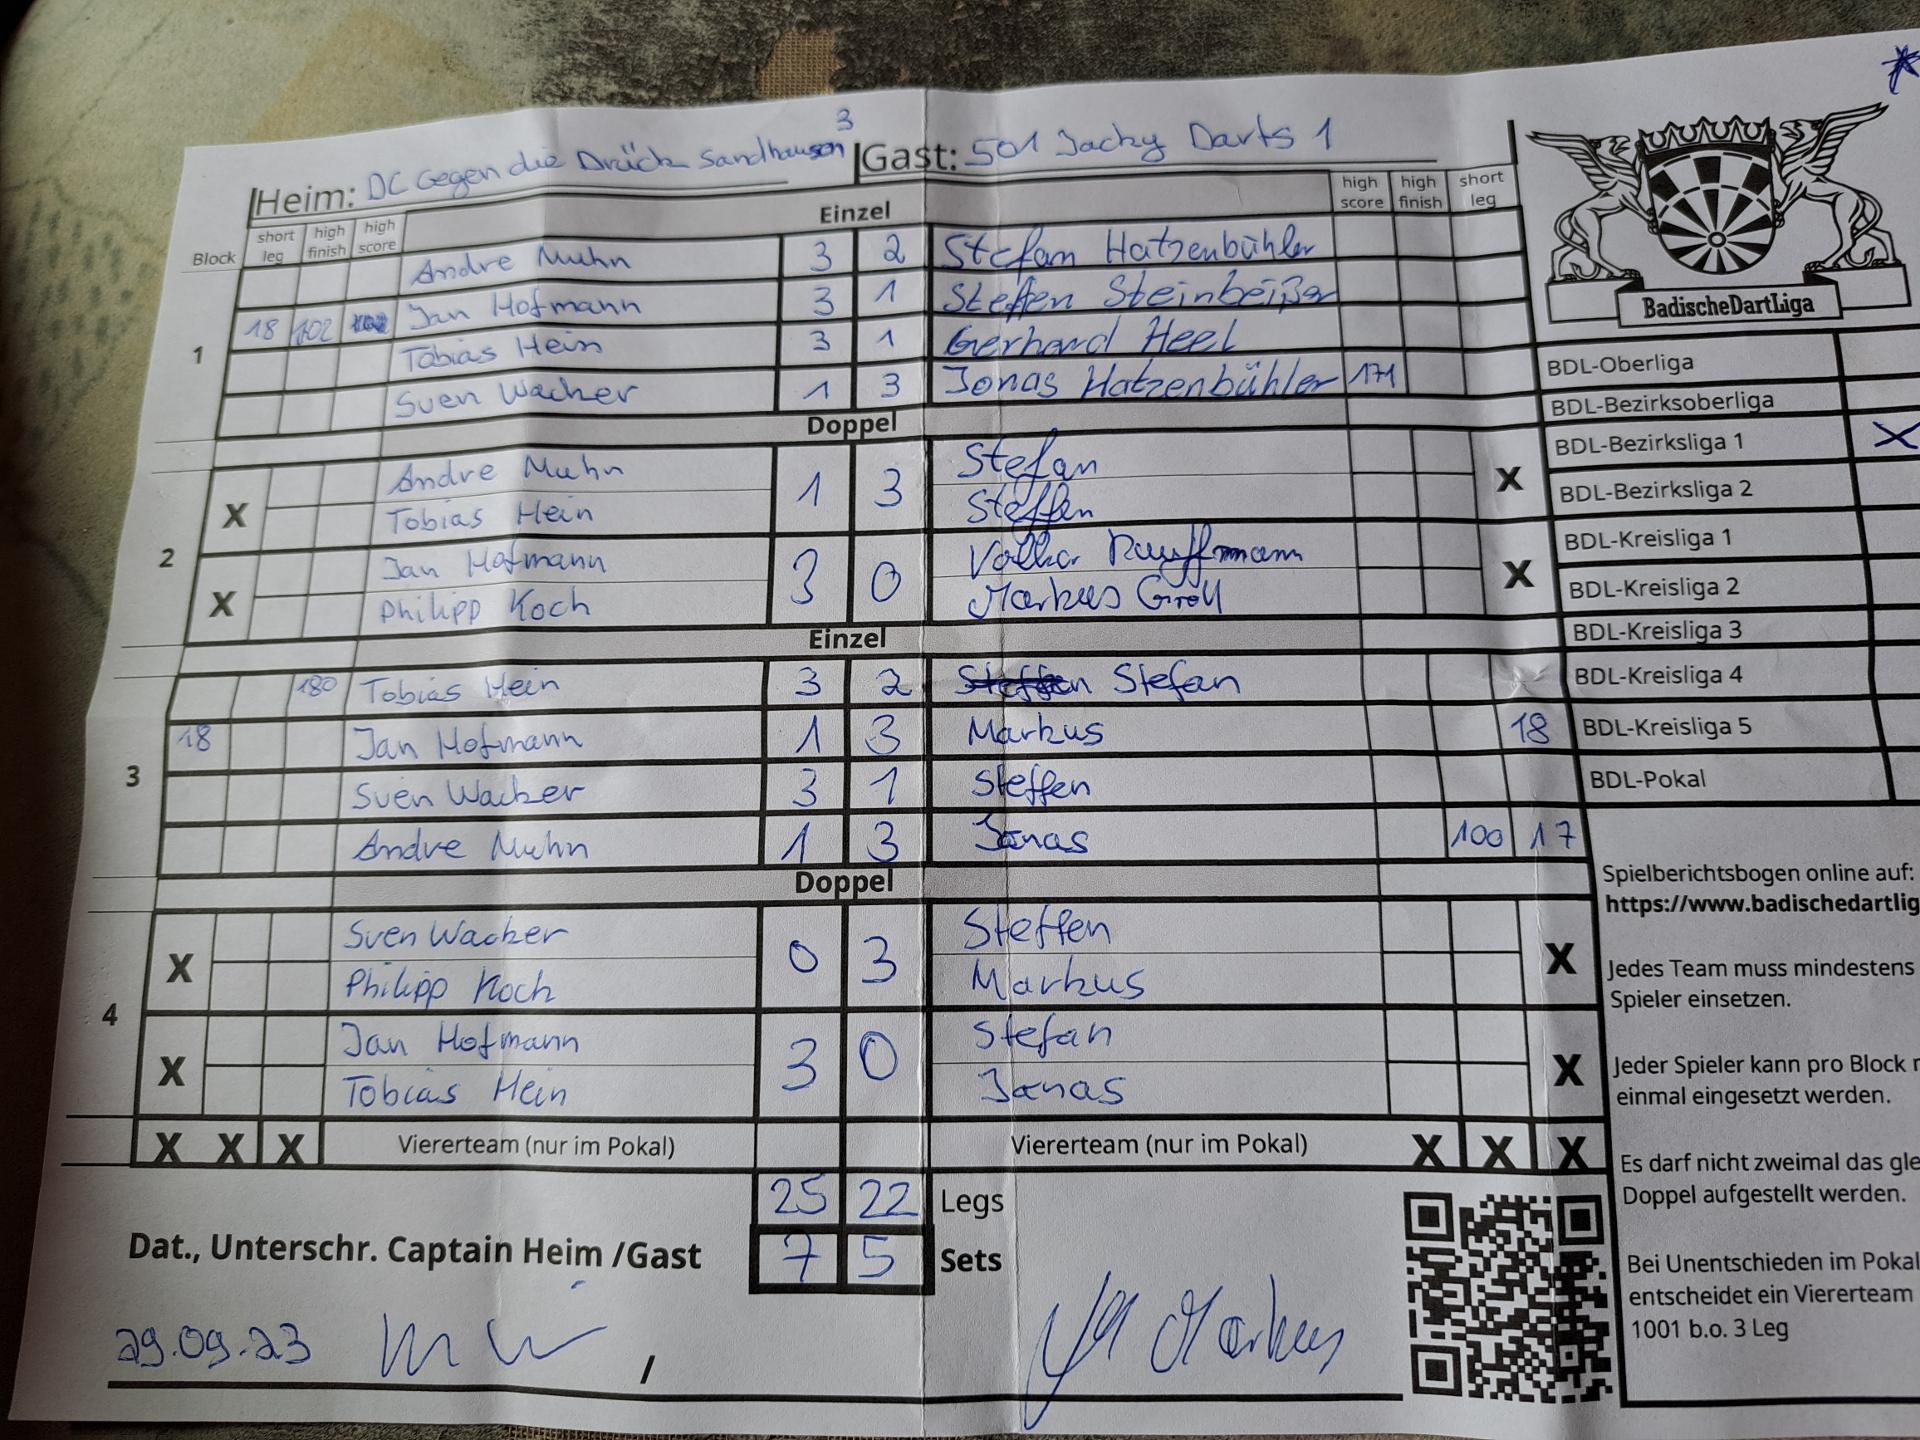 Heim: DC Gegen die Drück Sandhausen 3 Gast: 501 Jacky Darts 1
Block short leg high finish high score Einzel high score high finish short leg
Andre Muhn 3 2 Stefan Hatzenbühler
18 102 Jan Hofmann 3 1 Steffen Steinbeißer
1 Tobias Hein 3 1 Gerhard Heel
Sven Wacker 1 3 Jonas Hatzenbühler 171
Doppel
Andre Muhn 1 3 Stefan
X Tobias Hein Steffen X
2
Jan Hofmann 3 0 Volker Kauffmann
X Philipp Koch Markus Groll X
Einzel
180 Tobias Hein 3 2 Stefan
18 Jan Hofmann 1 3 Markus 18
3 Sven Wacker 3 1 Steffen
Andre Muhn 1 3 Jonas 100 17
Doppel
Sven Wacker 0 3 Steffen
X Philipp Koch Markus X
4
Jan Hofmann 3 0 Stefan
X Tobias Hein Jonas X
X X X Viererteam (nur im Pokal) Viererteam (nur im Pokal) X X X
25 22 Legs
Dat., Unterschr. Captain Heim /Gast 7 5 Sets
29.09.23 / Markus
BadischeDartLiga
BDL-Oberliga
BDL-Bezirksoberliga
BDL-Bezirksliga 1 X
BDL-Bezirksliga 2
BDL-Kreisliga 1
BDL-Kreisliga 2
BDL-Kreisliga 3
BDL-Kreisliga 4
BDL-Kreisliga 5
BDL-Pokal
Spielberichtsbogen online auf:
https://www.badischedartlig
Jedes Team muss mindestens
Spieler einsetzen.
Jeder Spieler kann pro Block
einmal eingesetzt werden.
Es darf nicht zweimal das gle
Doppel aufgestellt werden.
Bei Unentschieden im Pokal
entscheidet ein Viererteam
1001 b.o. 3 Leg